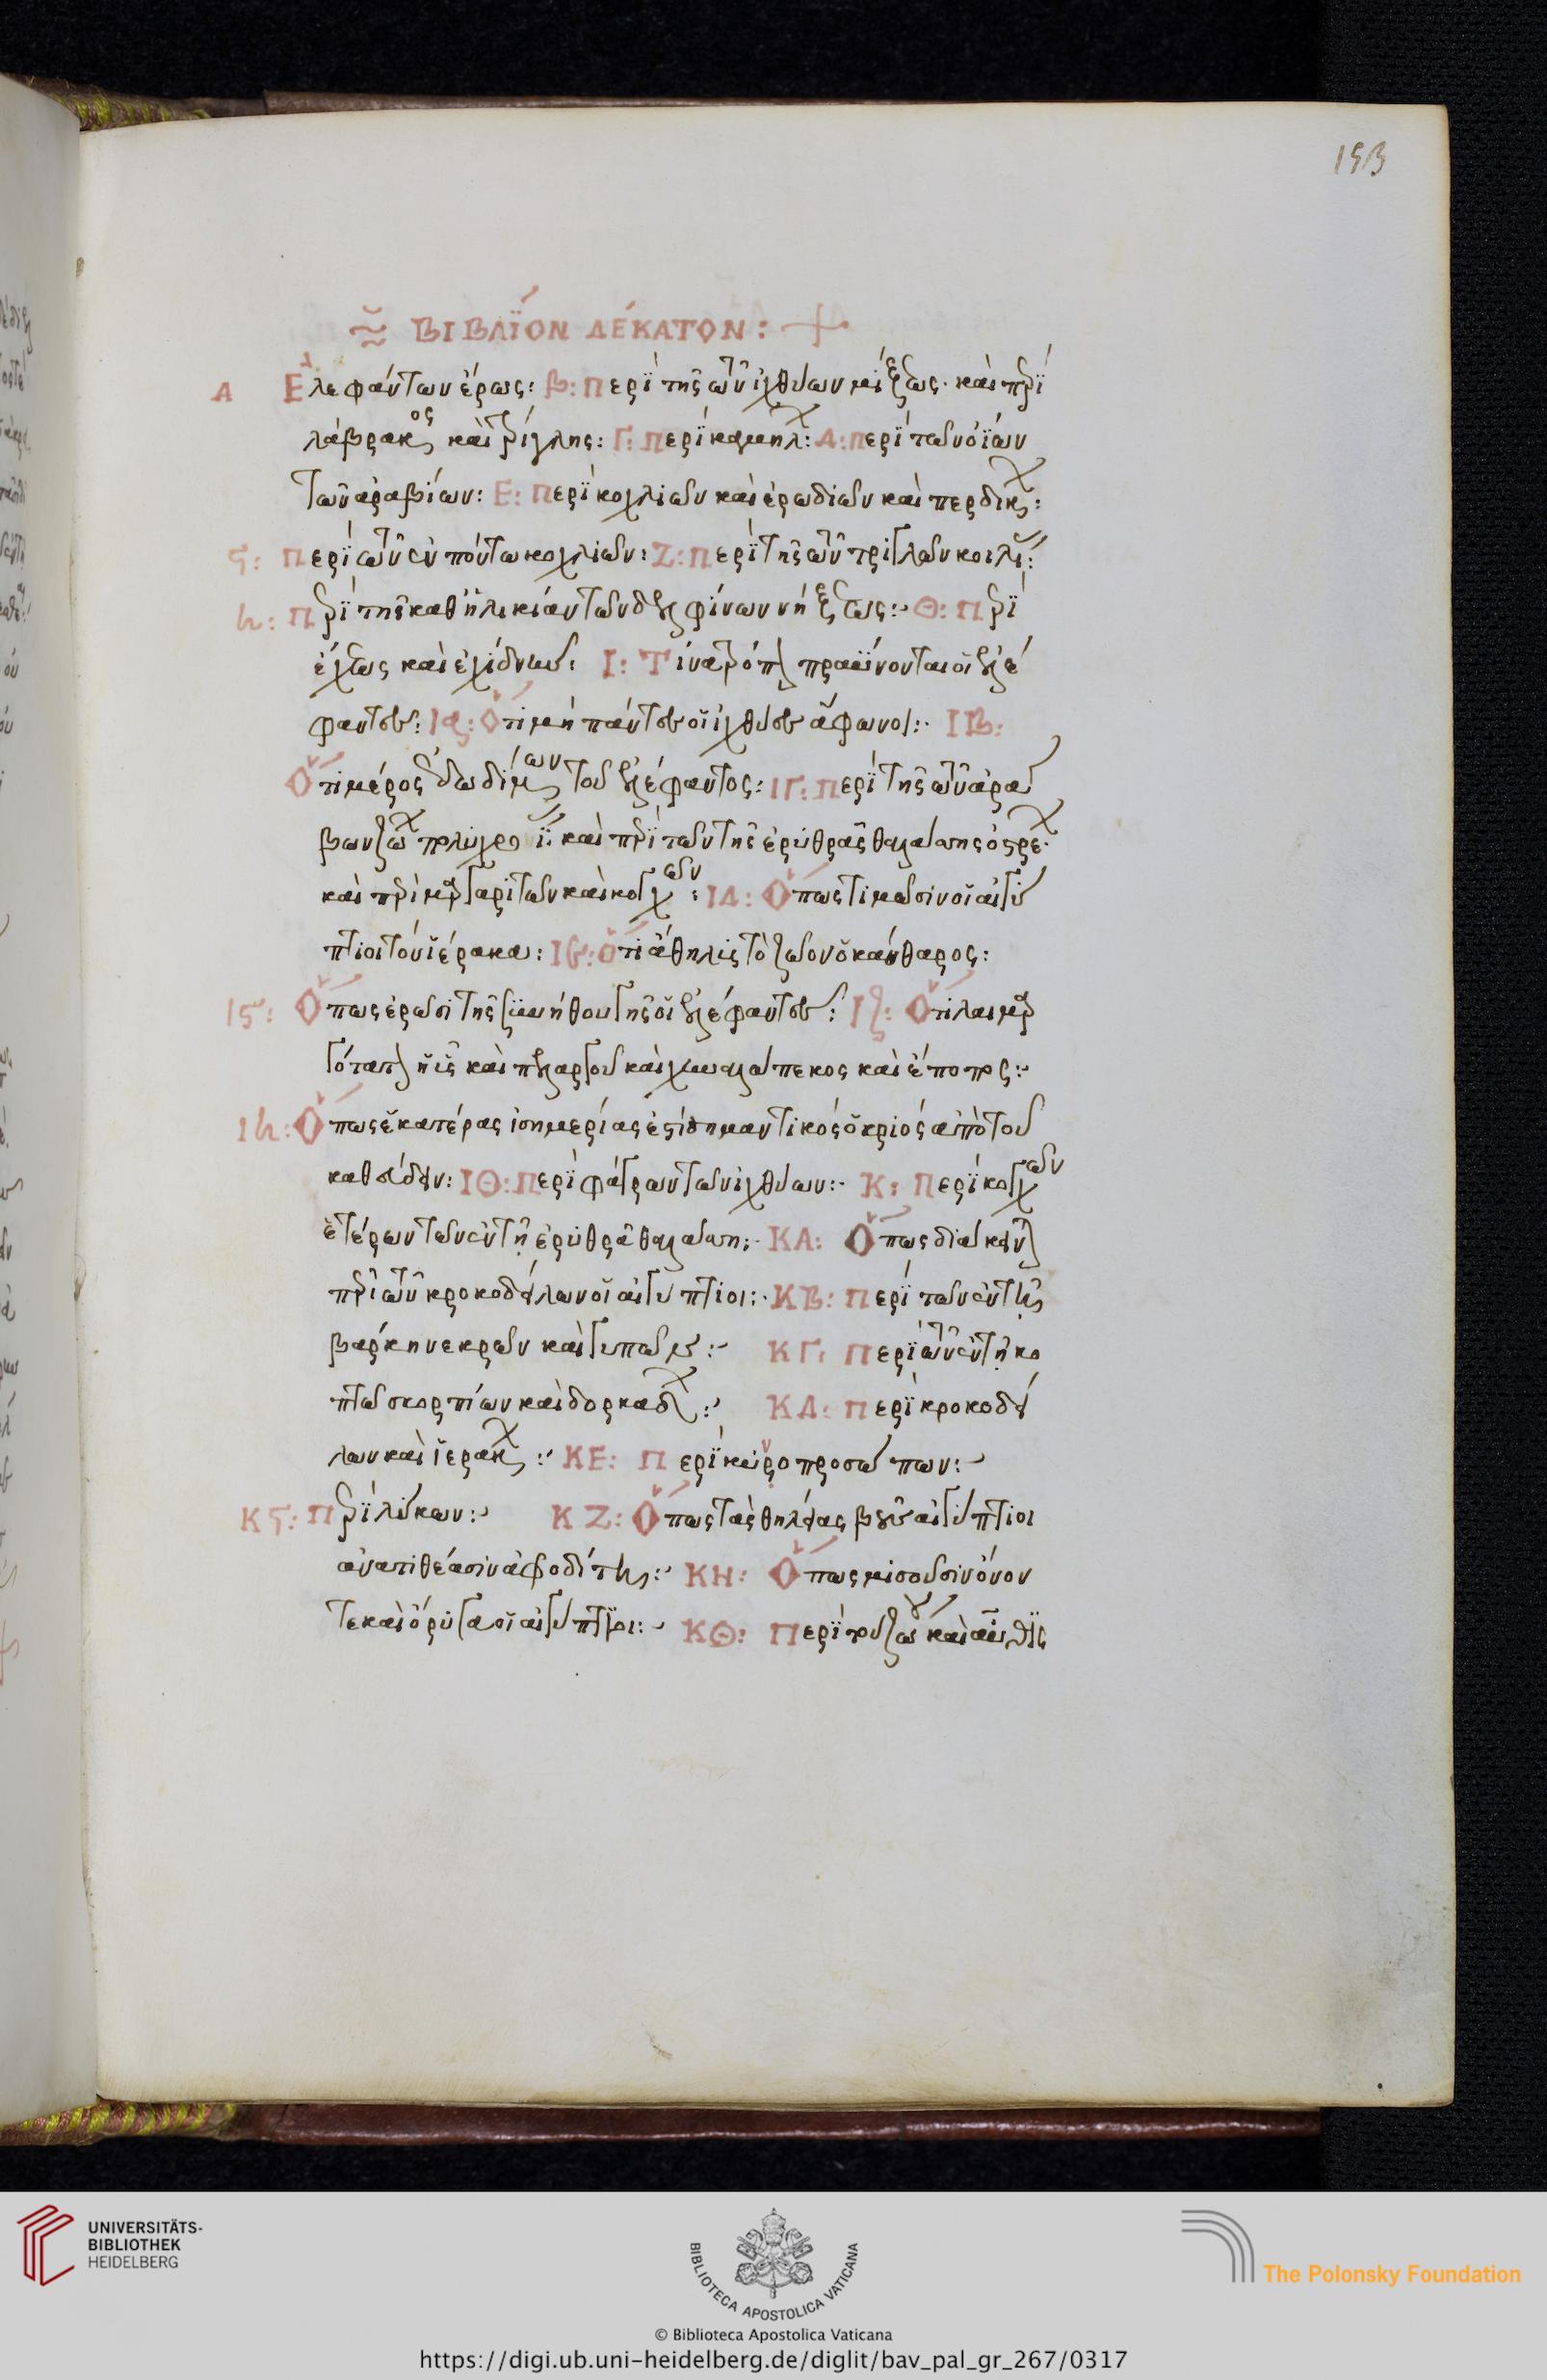 193
ΒΙΒΛΪΟΝ ΔΈΚΑΤΟΝ:
Α Ἐλεφάντων ἔρως: β: Περὶ τῆς τῶν ἰχθύων μίξεως. καὶ περὶ
λάβρακος καὶ τρίγλης: Γ: Περὶ καμήλ: Δ: περὶ τῶν ὑῶν
τῶν ἀραβίων: Ε: Περὶ κοχλιῶν καὶ ἐρωδιῶν καὶ περδίκ:
ς: Περὶ τῶν ἐν πόντω κοχλιῶν: Ζ: Περὶ τῆς τῶν τριγλῶν κοιλι:
h: Περὶ τῆς καθ ἡλικίαν τῶν δελφίνων νήξεως: Θ: Περὶ
ἔχεως καὶ ἐχίδνης: Ι: Τίνα τρόπον πραΰνονται οἱ ἐλέ
φαντες: Ια: Ὅτι μὴ πάντες οἱ ἰχθύες ἄφωνοι: ΙΒ:
Ὅτι μέρος ἐδωδίμων τοῦ ἐλέφαντος: ΙΓ: Περὶ τῆς τῶν ἀρά
βων ζώων καὶ περὶ τῶν τῆς ἐρυθρᾶς θαλάσσης ὀστρέ
καὶ περὶ μαργαριτῶν καὶ κογχῶν: ΙΔ: Ὅπως τιμῶσιν οἱ αἰγύ
πτιοι τὸν ἱέρακα: Ιε: Ὅτι ἄθηλις τὸ ζῶον ὁ κάνθαρος:
Ις: Ὅπως ἐρῶσι τῆς ξυννήθου γῆς οἱ ἐλέφαντες: Ιζ: Ὅτι λαιμαρ
γότατον καὶ πελαργοῦ καὶ χηναλώπεκος καὶ ἔποπος:
Ιh: Ὅπως ἑκατέρας ἰσημερίας ἐστὶ σημαντικὸς ὁ κριὸς ἀπὸ τοῦ
καθεύδειν: ΙΘ: Περὶ φάγρων τῶν ἰχθύων: Κ: Περὶ κογχῶν
ἑτέρων τῶν ἐν τῇ ἐρυθρᾷ θαλάσση: ΚΑ: Ὅπως διάκειν
περὶ τῶν κροκοδείλων οἱ αἰγύπτιοι: ΚΒ: Περὶ τῶν ἐν τῇ
βάρκη νεκρῶν καὶ γυπῶν: ΚΓ: Περὶ τῶν ἐν τῇ κο
πτῷ σκορπίων καὶ δορκάδ: ΚΔ: Περὶ κροκοδεί
λων καὶ ἱεράκ: ΚΕ: Περὶ κυνοπροσώπων:
Κς: Περὶ λύκων: ΚΖ: Ὅπως τὰς θηλείας βοῦς αἰγύπτιοι
ἀνατιθέασιν ἀφροδίτη: ΚΗ: Ὅπως μισοῦσιν ὄνον
τε καὶ ὄρυγα οἱ αἰγύπτιοι: ΚΘ: Περὶ τοῦ ζώου καὶ
UNIVERSITÄTS-
BIBLIOTHEK
HEIDELBERG
BIBLIOTECA APOSTOLICA VATICANA
The Polonsky Foundation
© Biblioteca Apostolica Vaticana
https://digi.ub.uni-heidelberg.de/diglit/bav_pal_gr_267/0317